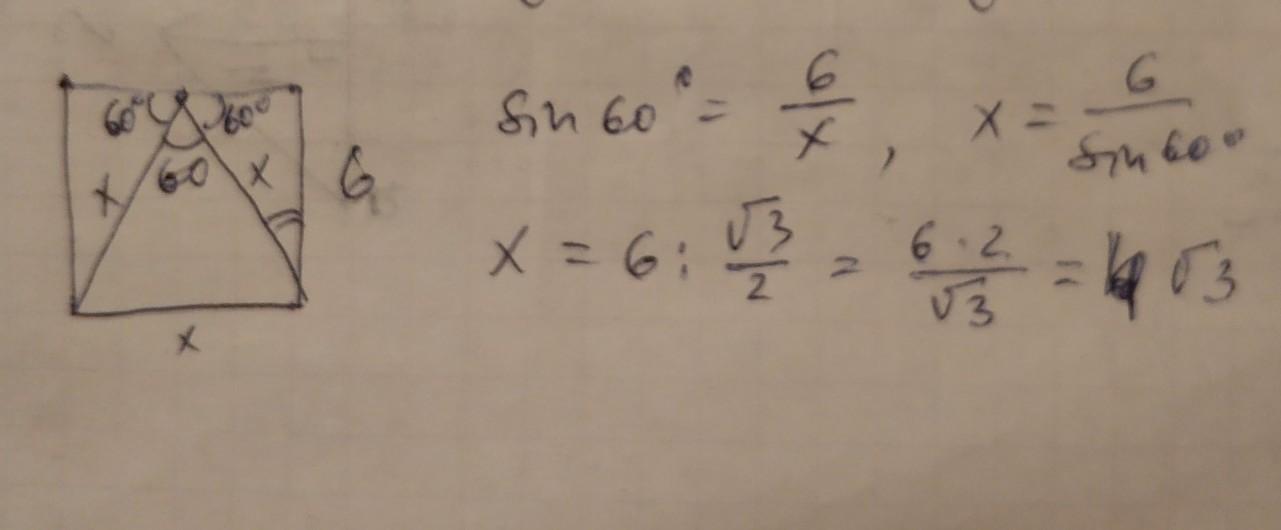 60° 60°
60
x x 6
x
sin 60° = 6/x , x = 6/sin 60°
x = 6 : √3/2 = 6 · 2/√3 = 4√3